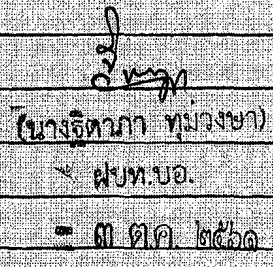 (นางฐิตาภา ทุมวงษา)
ฝบท.บอ.
- ๓ ต.ค. ๒๕๖๑